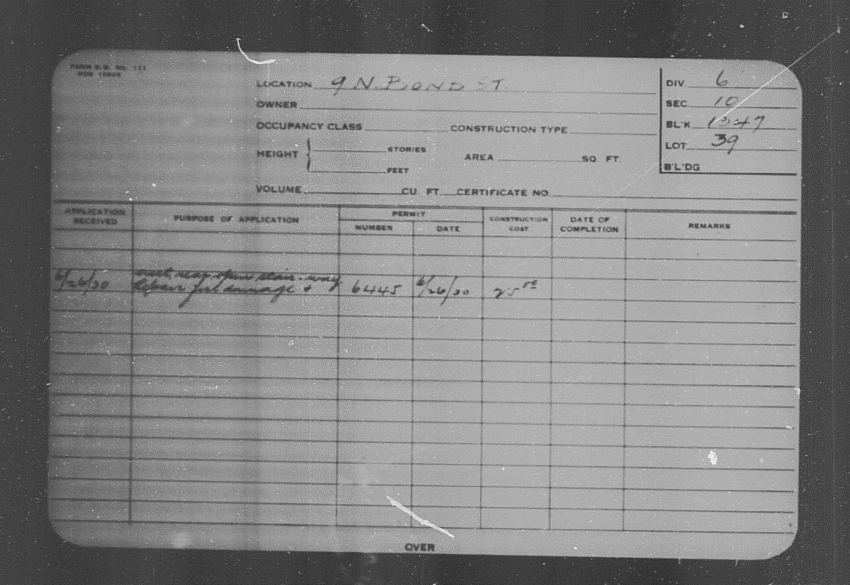 FORM B.B. No. 111
LOCATION 9 N. BOND ST.
DIV. 6
OWNER
SEC. 10
OCCUPANCY CLASS CONSTRUCTION TYPE
BL'K 1347
HEIGHT { STORIES
FEET
AREA SQ. FT.
LOT 39
B'L'DG
VOLUME CU. FT. CERTIFICATE NO.
APPLICATION RECEIVED PURPOSE OF APPLICATION PERMIT NUMBER DATE CONSTRUCTION COST DATE OF COMPLETION REMARKS
rear open stair-way
6/26/30 Repair fire damage + 6445 6/26/30 25 00
OVER